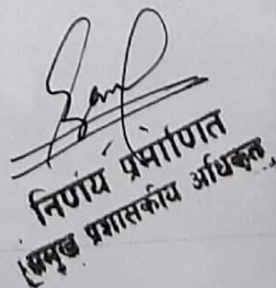 निर्णय प्रमाणित
(प्रमुख प्रशासकीय अधिकृत